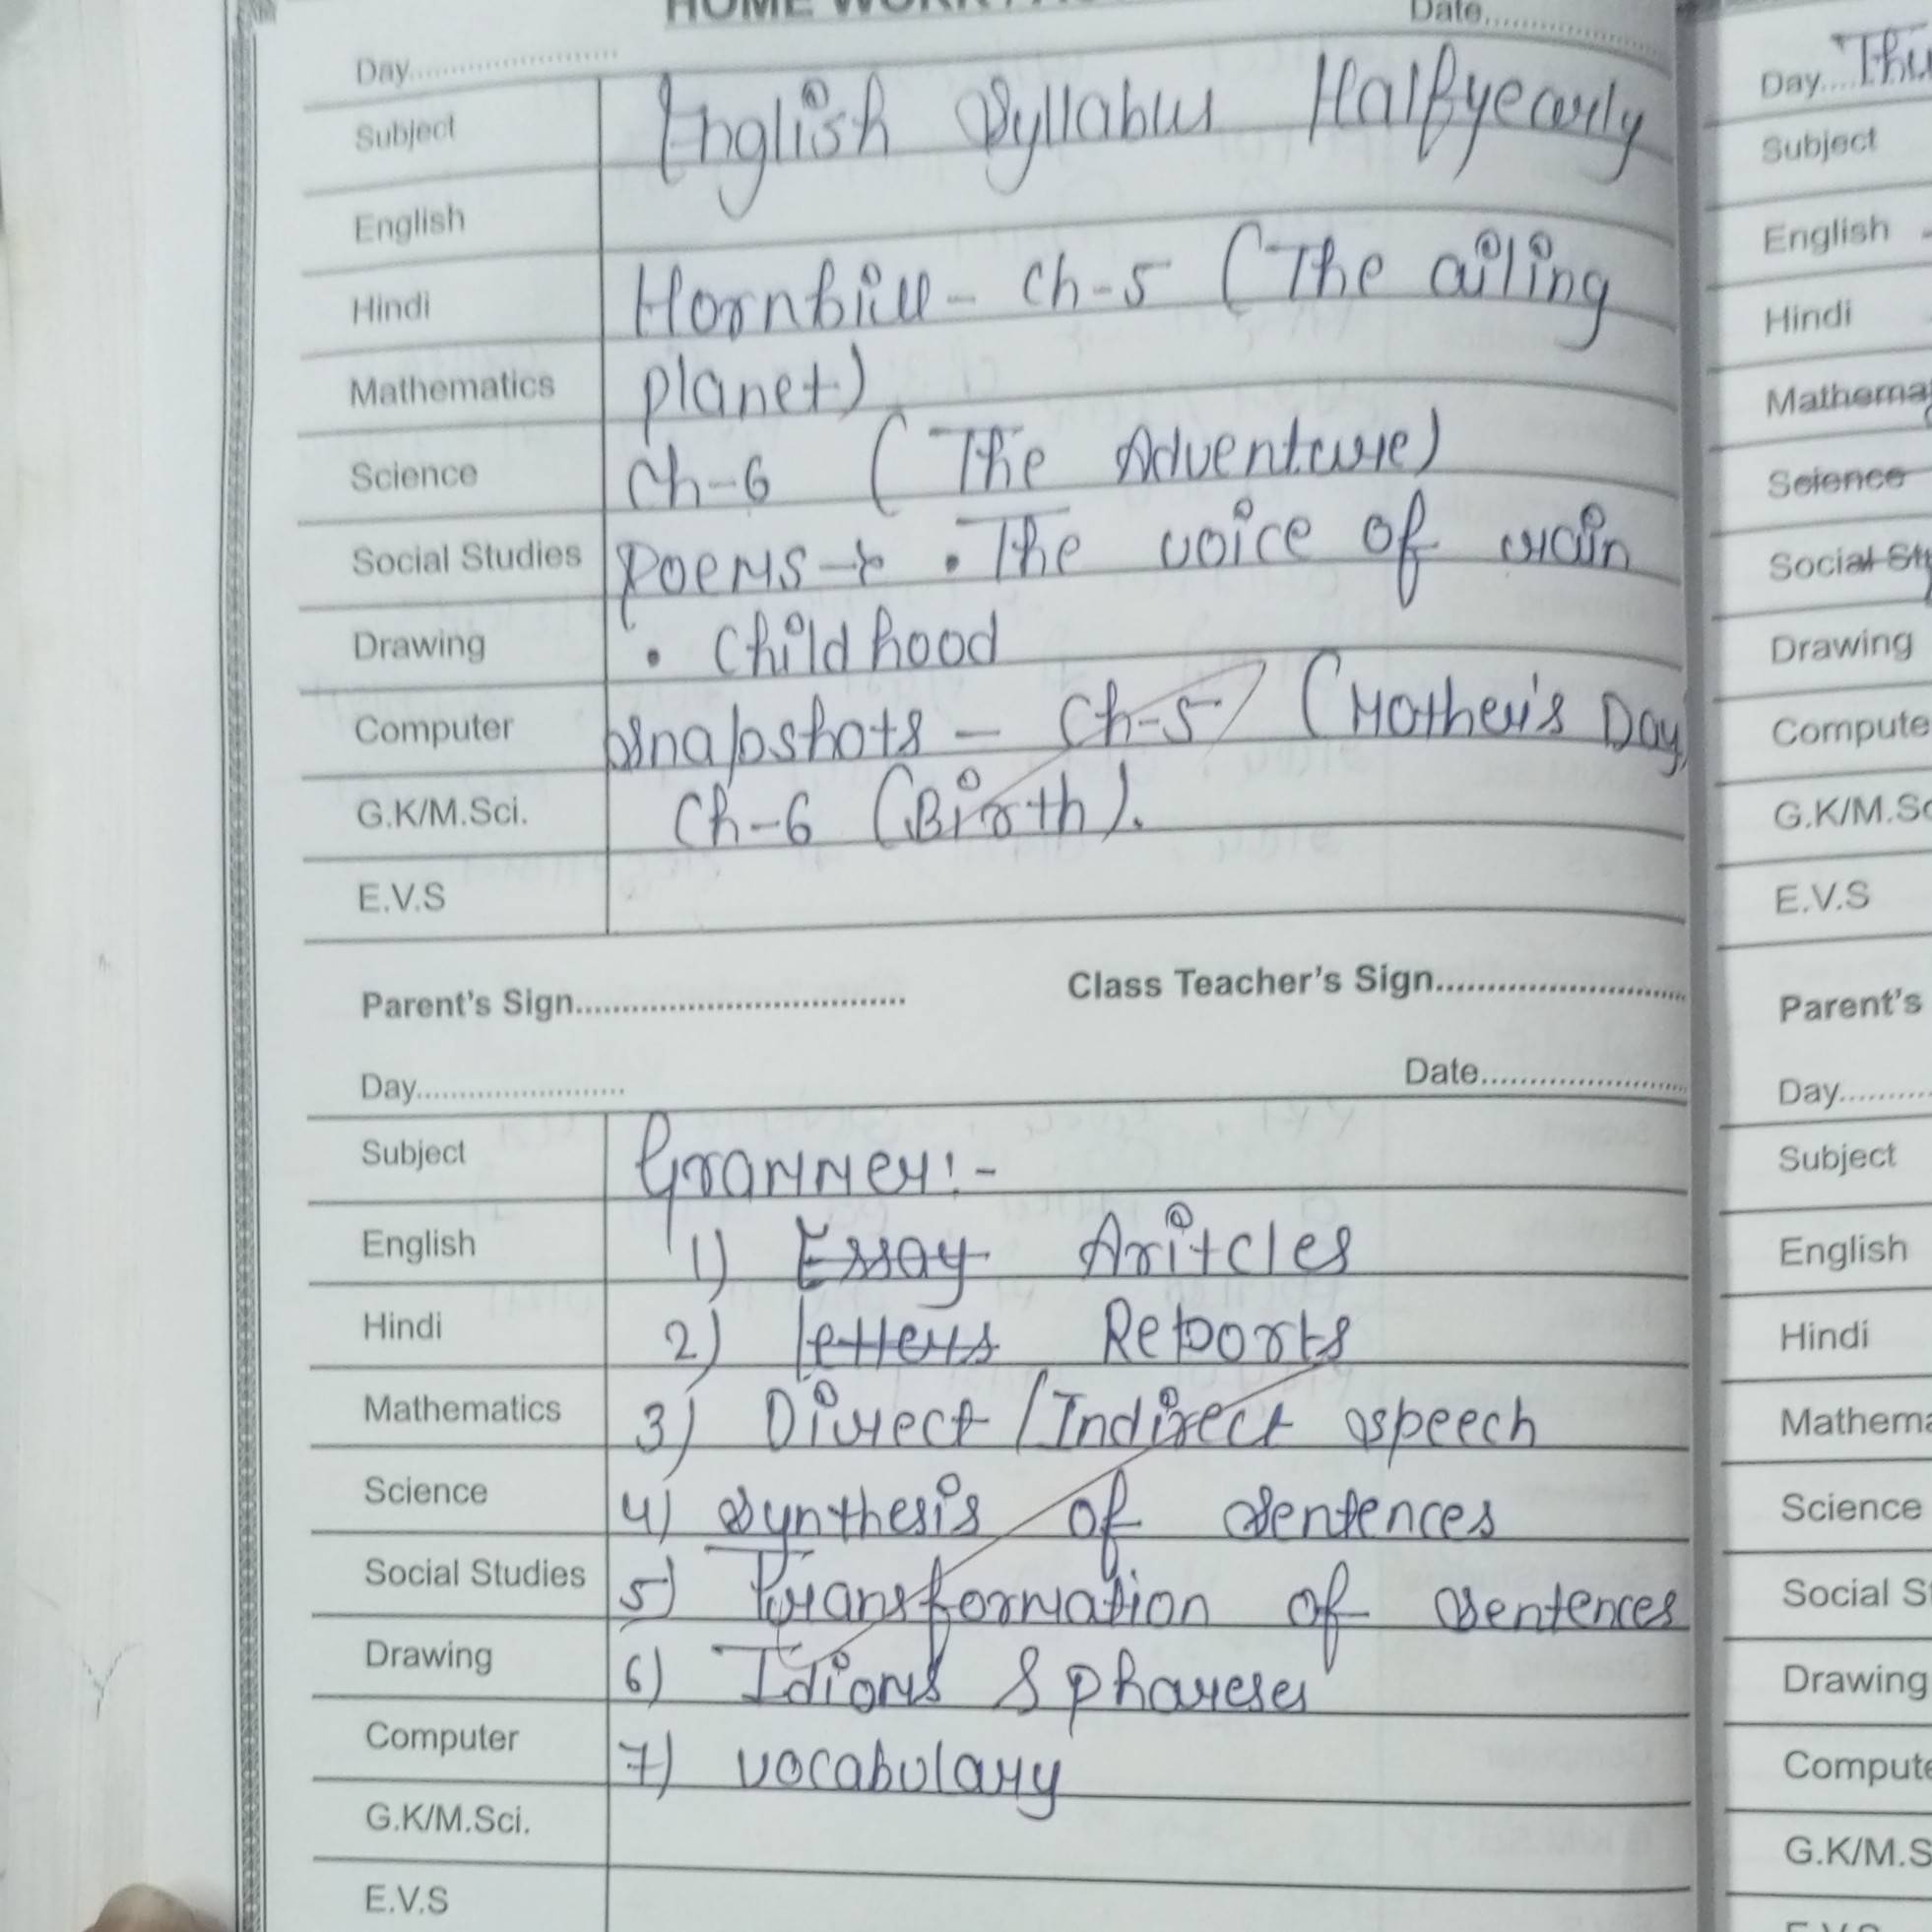 Day....................
Date....................
Subject
English Syllabus Halfyearly
English
Hindi
Hornbill - Ch-5 (The ailing
Mathematics
planet)
Science
Ch-6 (The Adventure)
Social Studies
Poems → • The voice of rain
Drawing
• Childhood
Computer
Snapshots - Ch-5 (Mother's Day)
G.K/M.Sci.
Ch-6 (Birth).
E.V.S
Parent's Sign.................................
Class Teacher's Sign.........................
Day.......................
Date......................
Subject
Grammer:-
English
1) Essay Aritcles
Hindi
2) letters Reports
Mathematics
3) Direct / Indirect speech
Science
4) Synthesis of sentences
Social Studies
5) Transformation of sentences
Drawing
6) Idioms & phareses
Computer
7) vocabulary
G.K/M.Sci.
E.V.S
Day....Thu
Subject
English
Hindi
Mathema
Science
Social St
Drawing
Compute
G.K/M.Sc
E.V.S
Parent's
Day..........
Subject
English
Hindi
Mathema
Science
Social S
Drawing
Compute
G.K/M.S